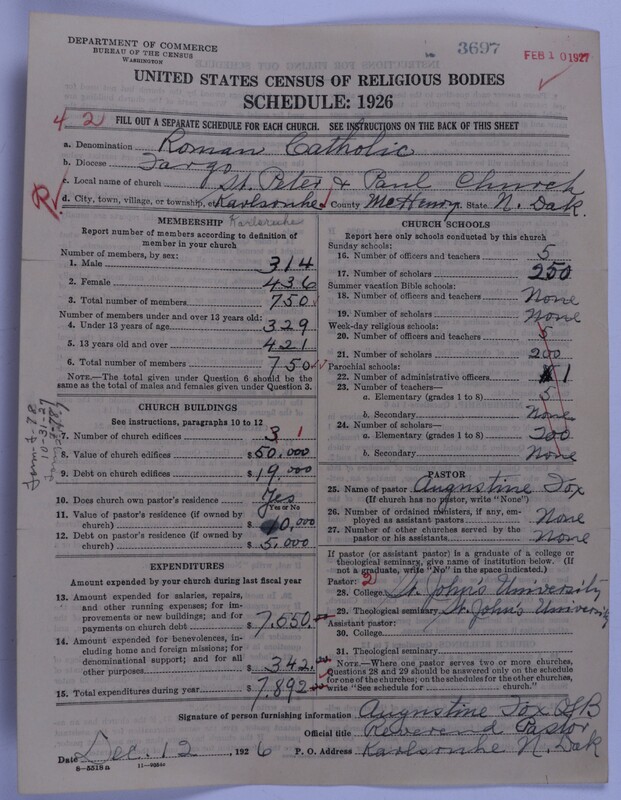 DEPARTMENT OF COMMERCE
BUREAU OF THE CENSUS
WASHINGTON
3697
FEB 10 1927
UNITED STATES CENSUS OF RELIGIOUS BODIES
SCHEDULE: 1926
4 2
FILL OUT A SEPARATE SCHEDULE FOR EACH CHURCH. SEE INSTRUCTIONS ON THE BACK OF THIS SHEET
a. Denomination Roman Catholic
b. Diocese Fargo
c. Local name of church St. Peter & Paul Church
d. City, town, village, or township, etc Karlsonhe County McHenry State N. Dak.
R
MEMBERSHIP Karlsruhe
Report number of members according to definition of
member in your church
Number of members, by sex:
1. Male 314
2. Female 436
3. Total number of members 750
Number of members under and over 13 years old:
4. Under 13 years of age 329
5. 13 years old and over 421
6. Total number of members 750
NOTE.—The total given under Question 6 should be
same as the total of males and females given under Question 3.
CHURCH BUILDINGS
See instructions, paragraphs 10 to 12
7. Number of church edifices 3 1
8. Value of church edifices $ 50,000
9. Debt on church edifices $ 19,000
10. Does church own pastor's residence Yes
Yes or No
11. Value of pastor's residence (if owned by
church) $ 10,000
12. Debt on pastor's residence (if owned by
church) $ 5,000
EXPENDITURES
Amount expended by your church during last fiscal year
13. Amount expended for salaries, repairs,
and other running expenses; for im-
provements or new buildings; and for
payments on church debt $ 7,550.00
14. Amount expended for benevolences, in-
cluding home and foreign missions; for
denominational support; and for all
other purposes $ 342.00
15. Total expenditures during year $ 7,892.00
10-31-27
CHURCH SCHOOLS
Report here only schools conducted by this church
Sunday schools:
16. Number of officers and teachers 5
17. Number of scholars 250
Summer vacation Bible schools:
18. Number of officers and teachers None
19. Number of scholars None
Week-day religious schools:
20. Number of officers and teachers 5
21. Number of scholars 200
Parochial schools:
22. Number of administrative officers 1
23. Number of teachers—
a. Elementary (grades 1 to 8) 5
b. Secondary None
24. Number of scholars—
a. Elementary (grades 1 to 8) 200
b. Secondary None
PASTOR
25. Name of pastor Augustine Fox
(If church has no pastor, write "None")
26. Number of ordained ministers, if any, em-
ployed as assistant pastors None
27. Number of other churches served by the
pastor or his assistants None
If pastor (or assistant pastor) is a graduate of a college or
theological seminary, give name of institution below. (If
not a graduate, write "No" in the space indicated.)
Pastor: 2
28. College St. John's University
29. Theological seminary St. John's University
Assistant pastor:
30. College
31. Theological seminary
NOTE.—Where one pastor serves two or more churches,
Questions 28 and 29 should be answered only on the schedule
for one of the churches; on the schedules for the other churches,
write "See schedule for church."
Signature of person furnishing information Augustine Fox OSB
Official title Reverend Pastor
Date Dec. 12, 1926 P. O. Address Karlsonhe N. Dak
8—5318a 11—9354a